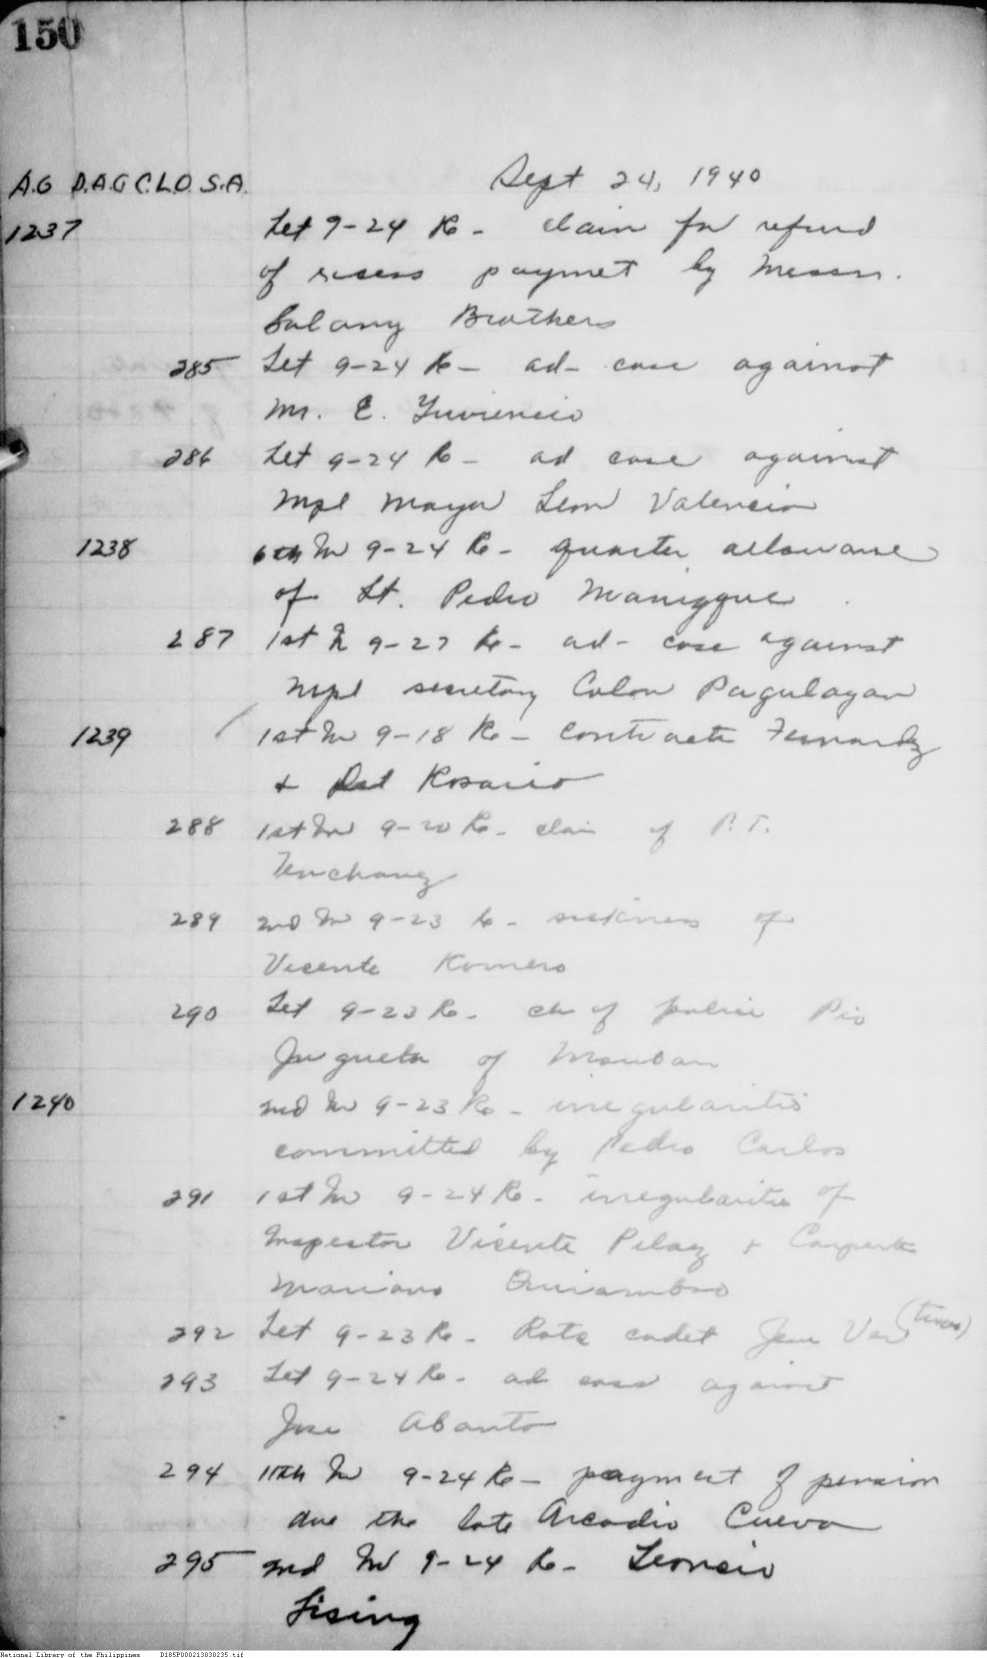 150
Sept 24, 1940
A.G D.A.G C.L.O. S.A.
1237 Let 9-24 Re - claim for refund
of excess paymet by Messrs.
Brothers
285 Let 9-24 Re - ad- case against
Mr. E. Yuviencio
286 Let 9-24 Re - ad case against
Mpl Mayor Leon Valencia
1238 6th In 9-24 Re - quarter allowance
of Lt. Pedro Maniqque
287 1st In 9-27 Re - ad- case against
Mpl secretary Colon Pagulayan
1239 1st In 9-18 Re - contracts Fernandz
& Del Rosario
288 1st In 9-20 Re - claim of P. T.
Tenchavez
289 2nd In 9-23 Re - sickness of
Vicente Romero
290 Let 9-23 Re - ch of police Pio
Jugueta of Mauban
1240 2nd In 9-23 Re - irregularities
committed by Pedro Carlos
291 1st In 9-24 Re - irregularities of
Inspector Vicente Pelaez & Carpenter
Mariano Quiambao
292 Let 9-23 Re - Rota cadet
293 Let 9-24 Re - ad case against
Jose Abanto
294 11th In 9-24 Re - payment of pension
due the late Arcadio Cueva
295 2nd In 9-24 Re - Leoncio
Lising
National Library of the Philippines D185P000213030235.tif